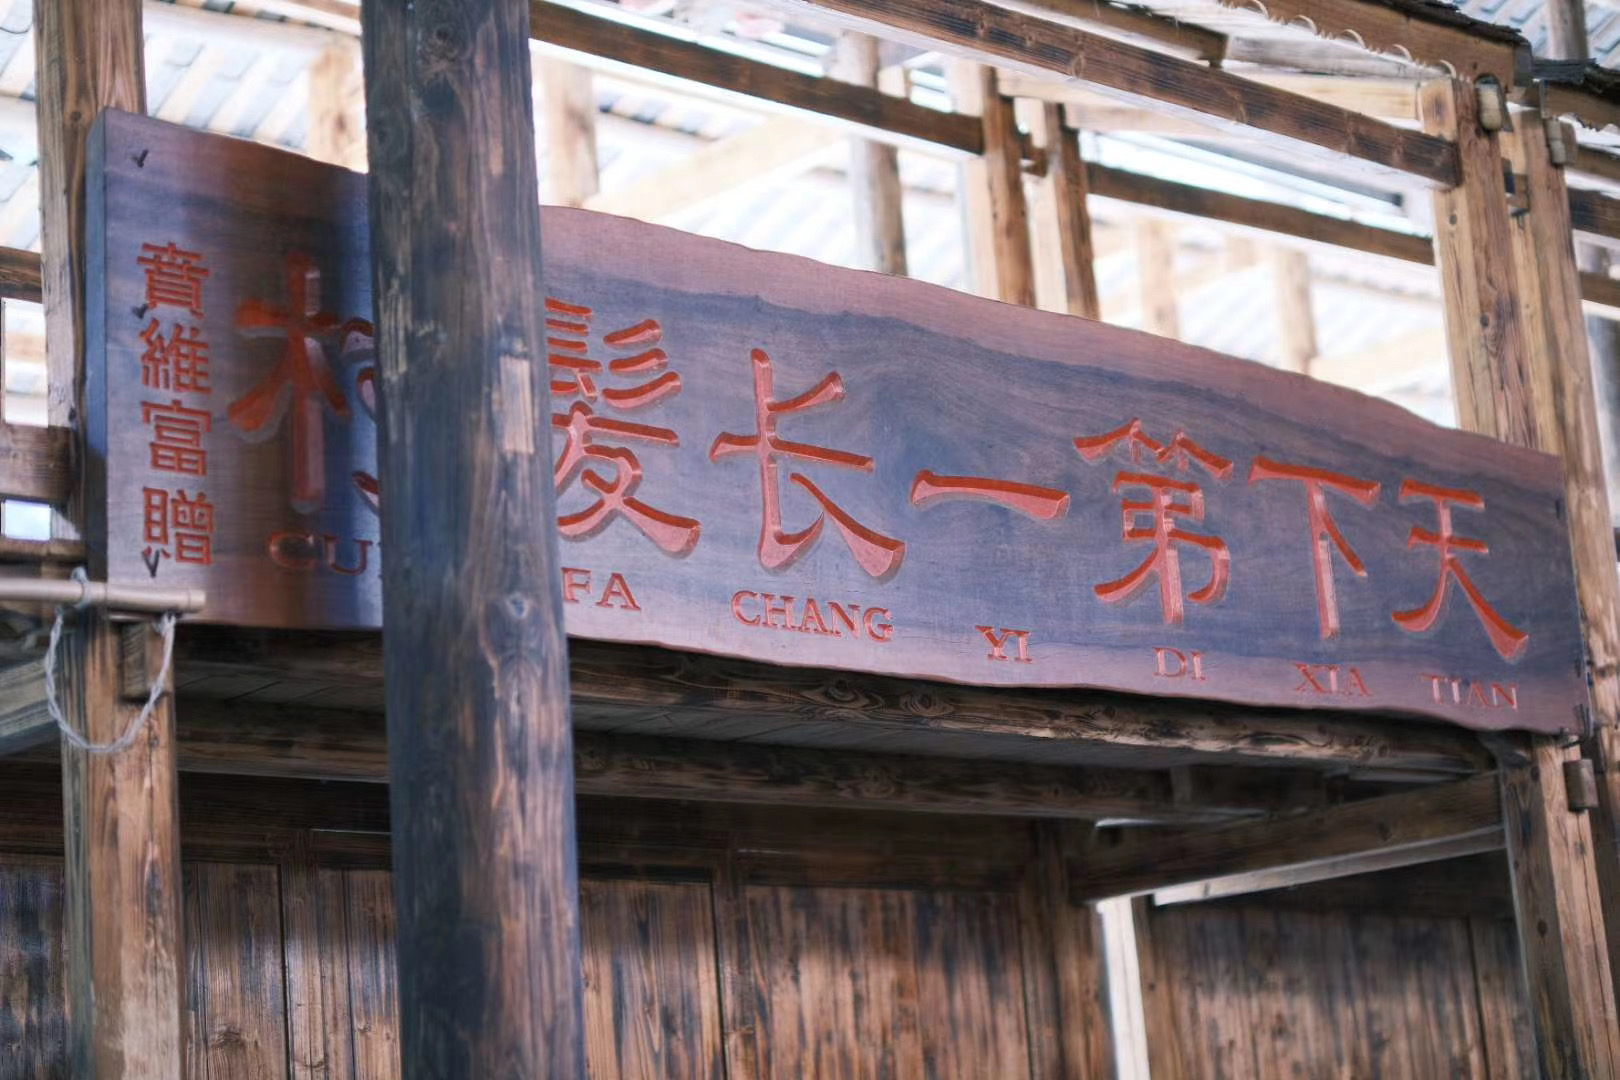 天下第一长髮村
TIAN XIA DI YI CHANG FA CU
賁維富贈